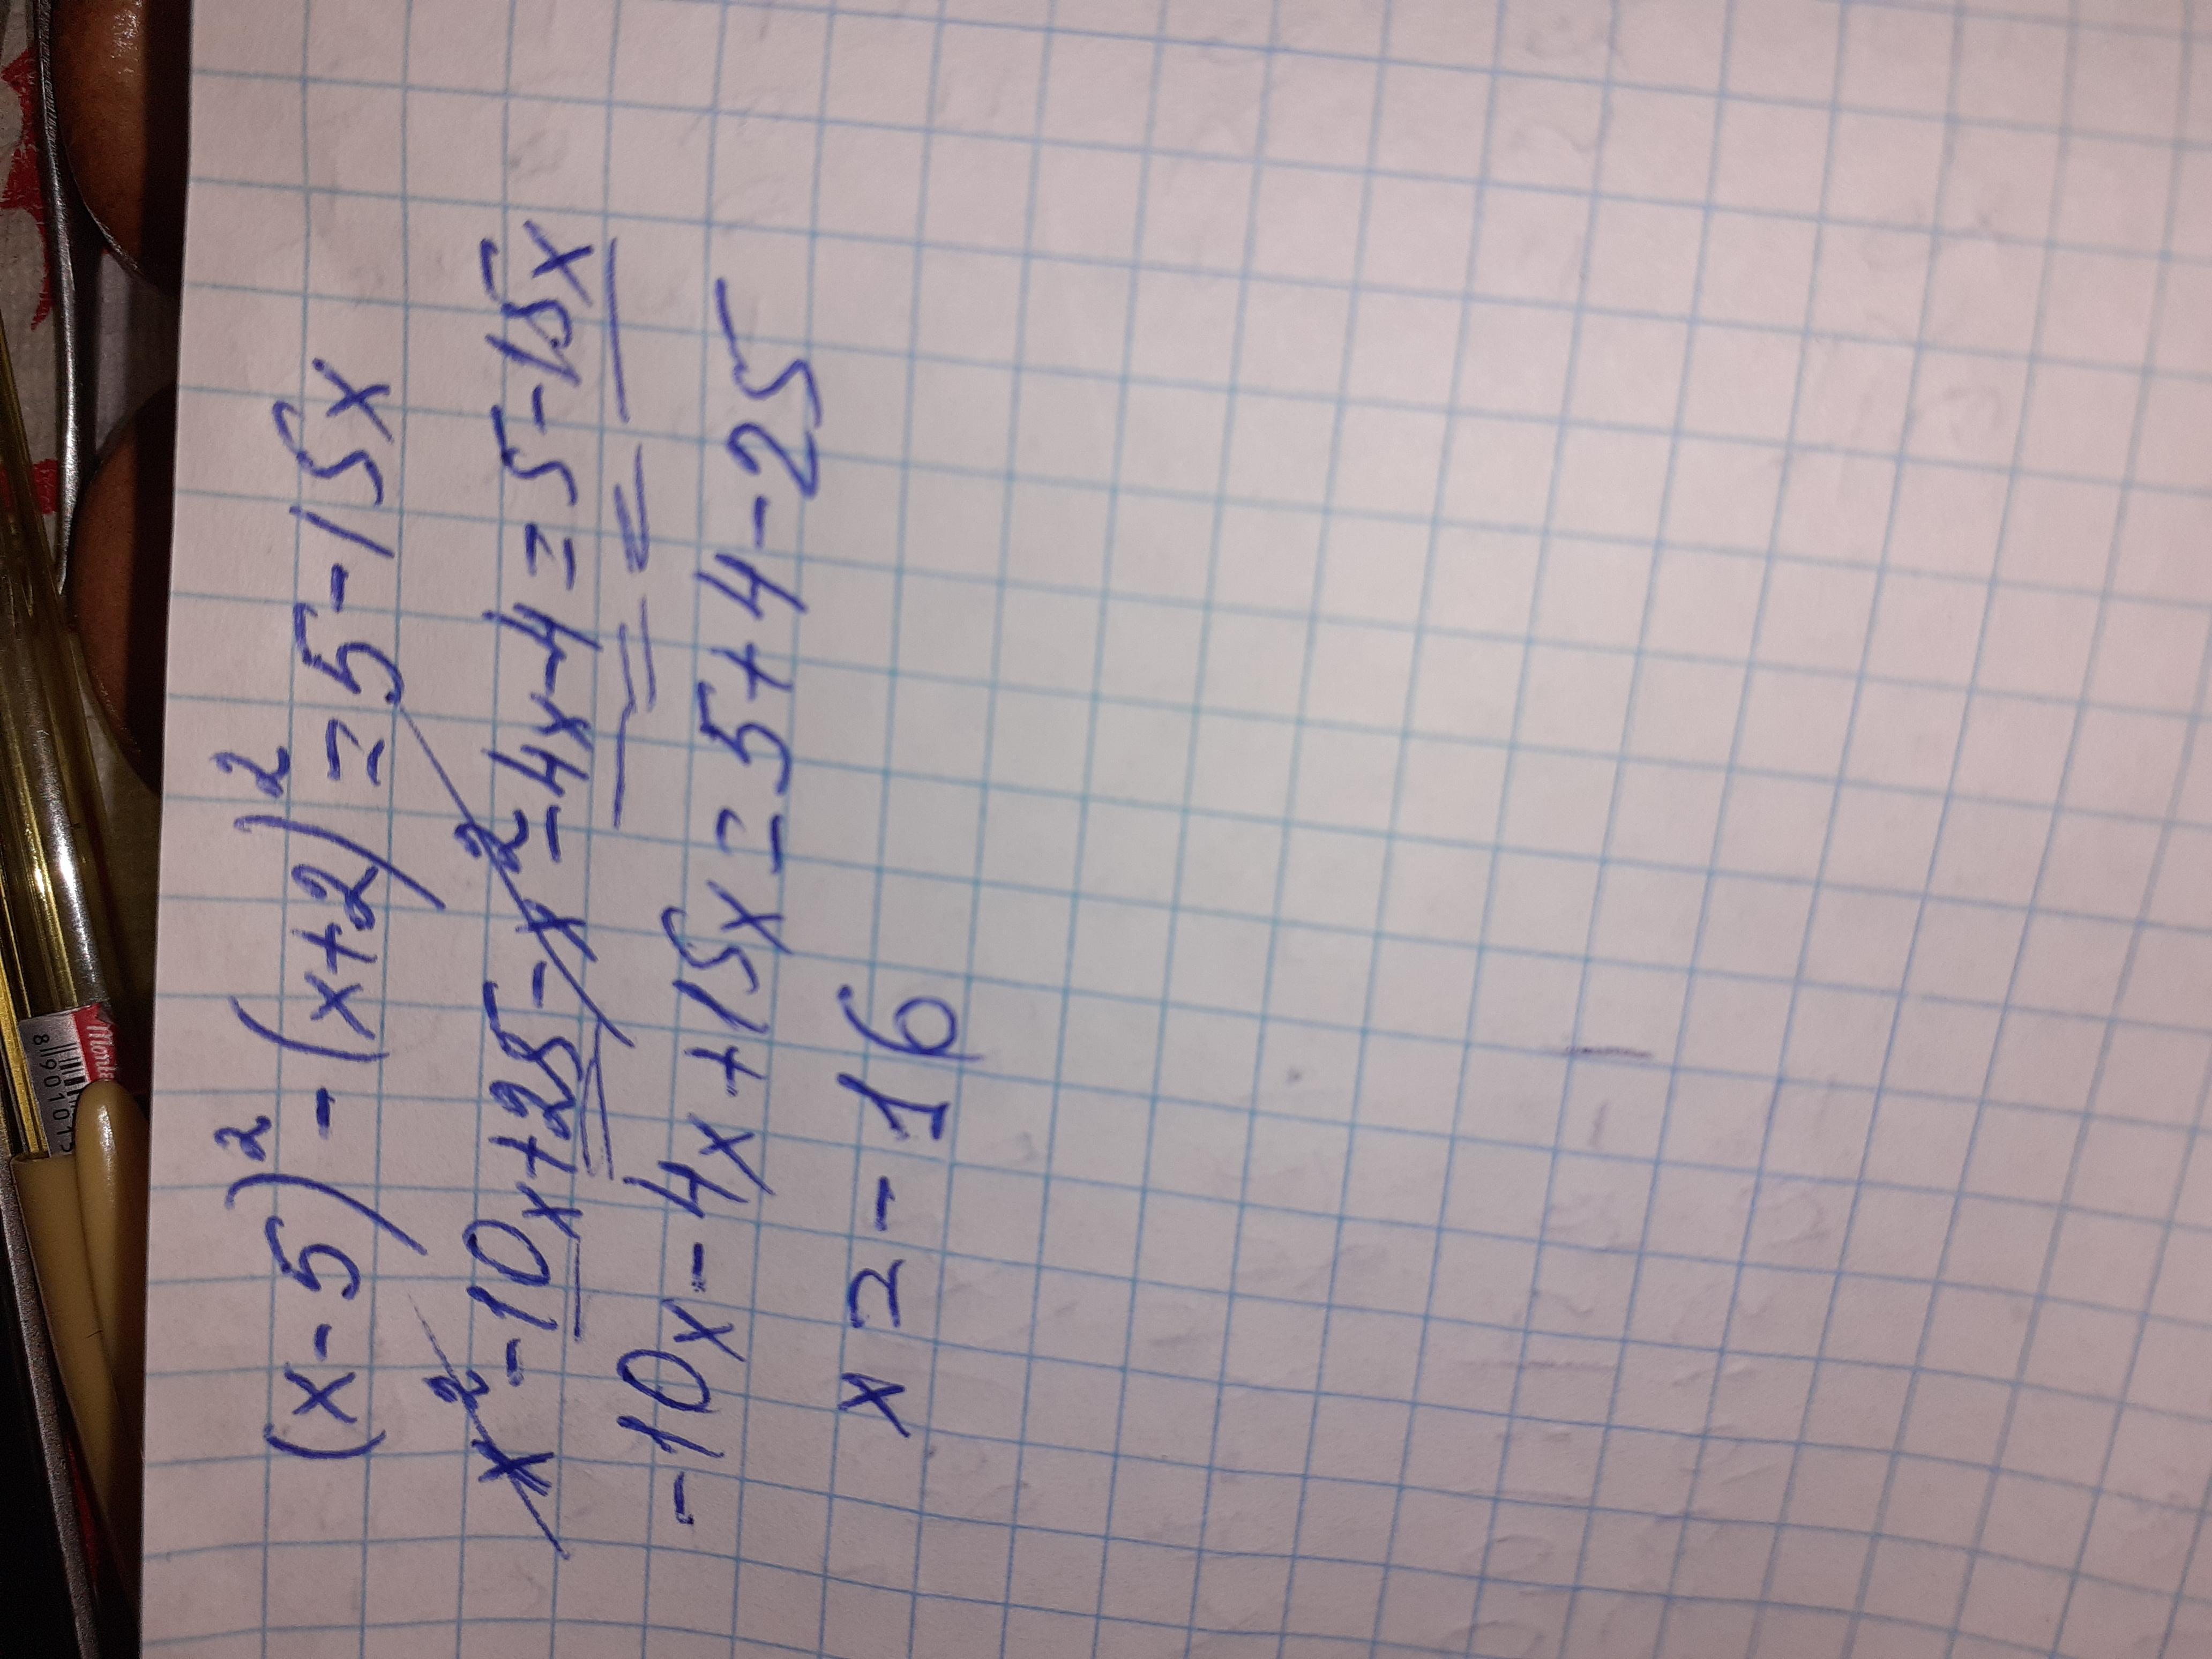 (x-5)² - (x+2)² = 5-15x
x²-10x+25-x²-4x-4=5-15x
-10x-4x+15x=5+4-25
x=-16
Monte
8 901013